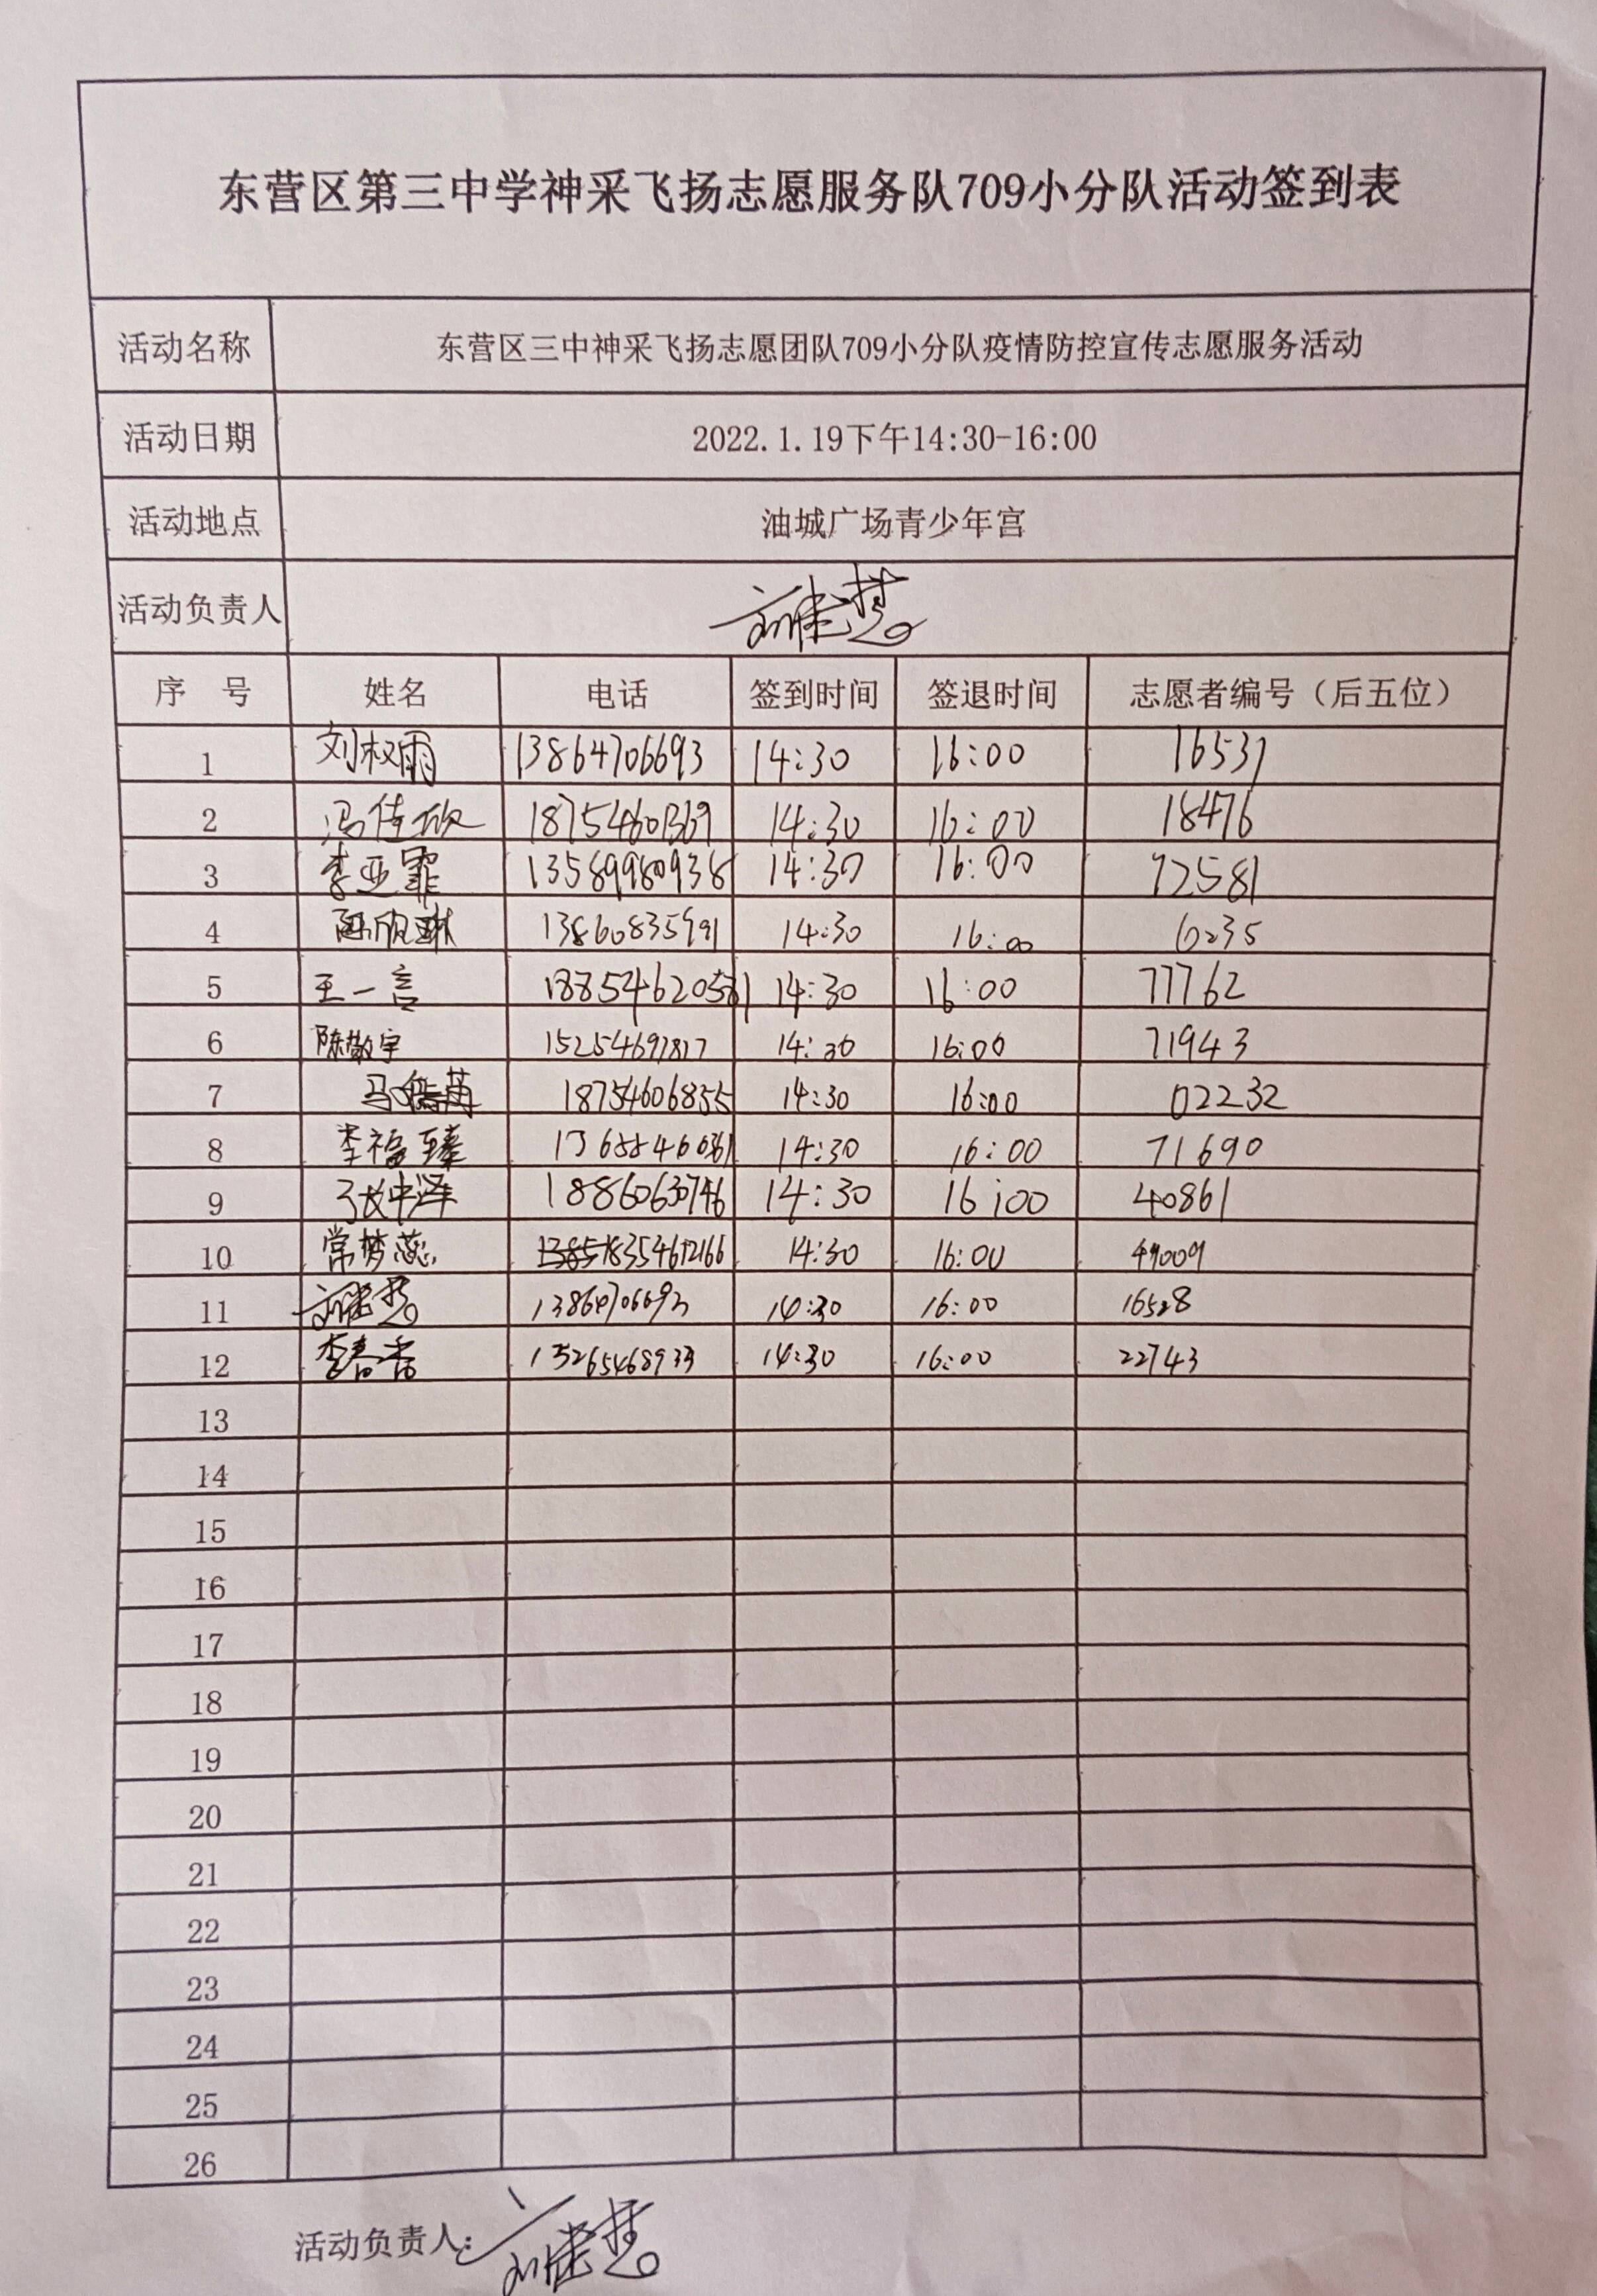 东营区第三中学神采飞扬志愿服务队709小分队活动签到表
活动名称 东营区三中神采飞扬志愿团队709小分队疫情防控宣传志愿服务活动
活动日期 2022.1.19下午14:30-16:00
活动地点 油城广场青少年宫
活动负责人
序 号 姓名 电话 签到时间 签退时间 志愿者编号（后五位）
1 刘权雨 13864706693 14:30 16:00 16537
2 冯佳欣 14:30 16:00 18476
3 李亚霏 13589980938 14:30 16:00 72581
4 陈欣琳 13860835991 14:30 16:00
5 王一言 14:30 16:00 77762
6 陈敬宇 15254697817 14:30 16:00 71943
7 18754606855 14:30 16:00 02232
8 李福臻 14:30 16:00 71690
9 张中泽 18860630746 14:30 16:00 40861
10 常梦蕊 14:30 16:00 49009
11 13864706693 14:30 16:00 16528
12 李春香 14:30 16:00 22743
13
14
15
16
17
18
19
20
21
22
23
24
25
26
活动负责人：